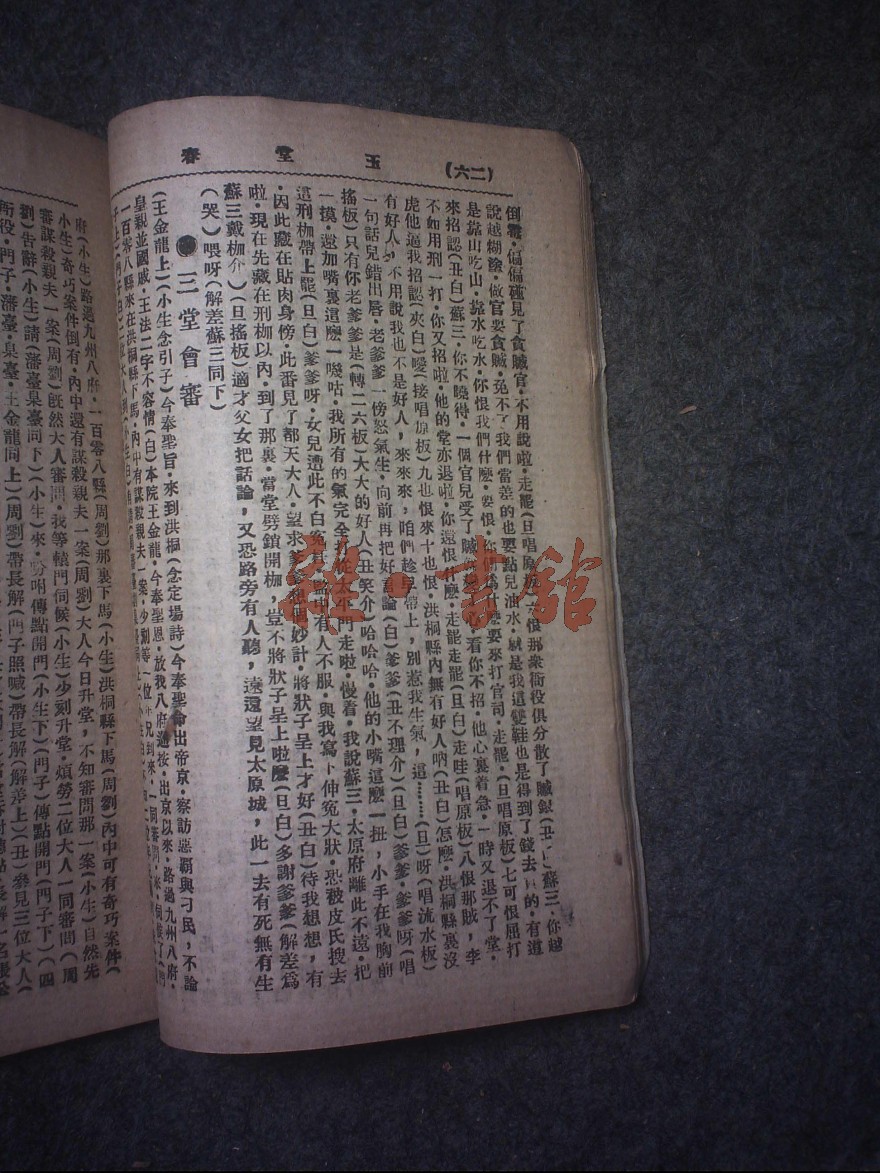 玉堂春
(六二)
倒霉·偏偏碰見了貪贓官·不用說啦·走罷(旦唱原板)六恨那衆衙役俱分散了贓銀(丑白)蘇三·你越
說越糊塗·做官要貪贓·免不了我們當差的也要點兒油水·就是我這雙鞋也是得到了錢去買的·有道
是靠山吃山·靠水吃水·你恨我們什麼·要恨·你們爲什麼要來打官司·走罷·(旦唱原板)七可恨屈打
來招認(丑白)蘇三·你不曉得·一個官兒受了贓·看你不招·他心裏着急·一時又退不了堂·
不如用刑一打·你又招啦·他的堂亦退啦·你還恨什麼·走罷走罷(旦白)走哇(唱原板)八恨那賊·李
虎他逼我招認(夾白)噯(接唱原板)九也恨來十也恨·洪桐縣內無有好人吶(丑白)怎麼·洪桐縣裏沒
有好人·不用說我也不是好人·來來來·咱們趁早帶上·別惹我生氣·這……(旦)呀(唱流水板)
一句話兒錯出唇·老爹爹一傍怒氣生·向前再把好言論(白)爹爹(丑不理介)(旦白)爹爹·爹爹呀(唱
搖板)只有你老爹爹是(轉二六板)大大的好人(丑笑介)哈哈哈·他的小嘴這麼一扭·小手在我胸前
一摸·迸加嘴裏這麼一嘰咕·我所有的氣完全從太平門走啦·慢着·我說蘇三·太原府離此不遠·把
這刑枷帶上罷(旦白)爹爹呀·女兒遭此不白冤·中有人不服·與我寫下伸冤大狀·恐被皮氏搜去
·因此藏在貼肉身傍·此番見了都天大人·望求爹爹想個妙計·將狀子呈上才好(丑白)待我想想·有
啦·現在先藏在刑枷以內·到了那裏·當堂劈鎖開枷·豈不將狀子呈上啦麼(旦白)多謝爹爹(解差爲
蘇三戴枷介)(旦搖板)適才父女把話論·又恐路旁有人聽·遠遠望見太原城·此一去有死無有生
(哭)喂呀(解差蘇三同下)
三堂會審
(王金龍上)(小生念引子)今奉聖旨·來到洪桐(念定場詩)今奉聖諭出帝京·察訪惡霸與刁民·不論
皇親並國戚·王法二字不容情(白)本院王金龍·今奉聖恩·放我八府巡按·出京以來·路過九州八府·
一百零八縣來在洪桐縣下馬·內中有謀殺親夫一案·少刻等二位
府(小生)路過九州八府·一百零八縣(周劉)那裏下馬(小生)洪桐縣下馬(周劉)內中可有奇巧案件(
小生)奇巧案件倒有·內中還有謀殺親夫一案(周劉)大人今日升堂·不知審問那一案(小生)自然先
審謀殺親夫一案(周劉)既然大人審問·我等轅門伺候(小生)少刻升堂·煩勞二位大人一同審問(周
劉)告辭(小生)請(藩臺臬臺同下)(小生)來·吩咐傳點開門(小生下)(門子)傳點開門(門子下)(四
所役·門子·藩臺·臬臺·王金龍同上)(周劉)帶長解(門子照喊)帶長解(解差上)(丑)參見三位大人(
雜·書館